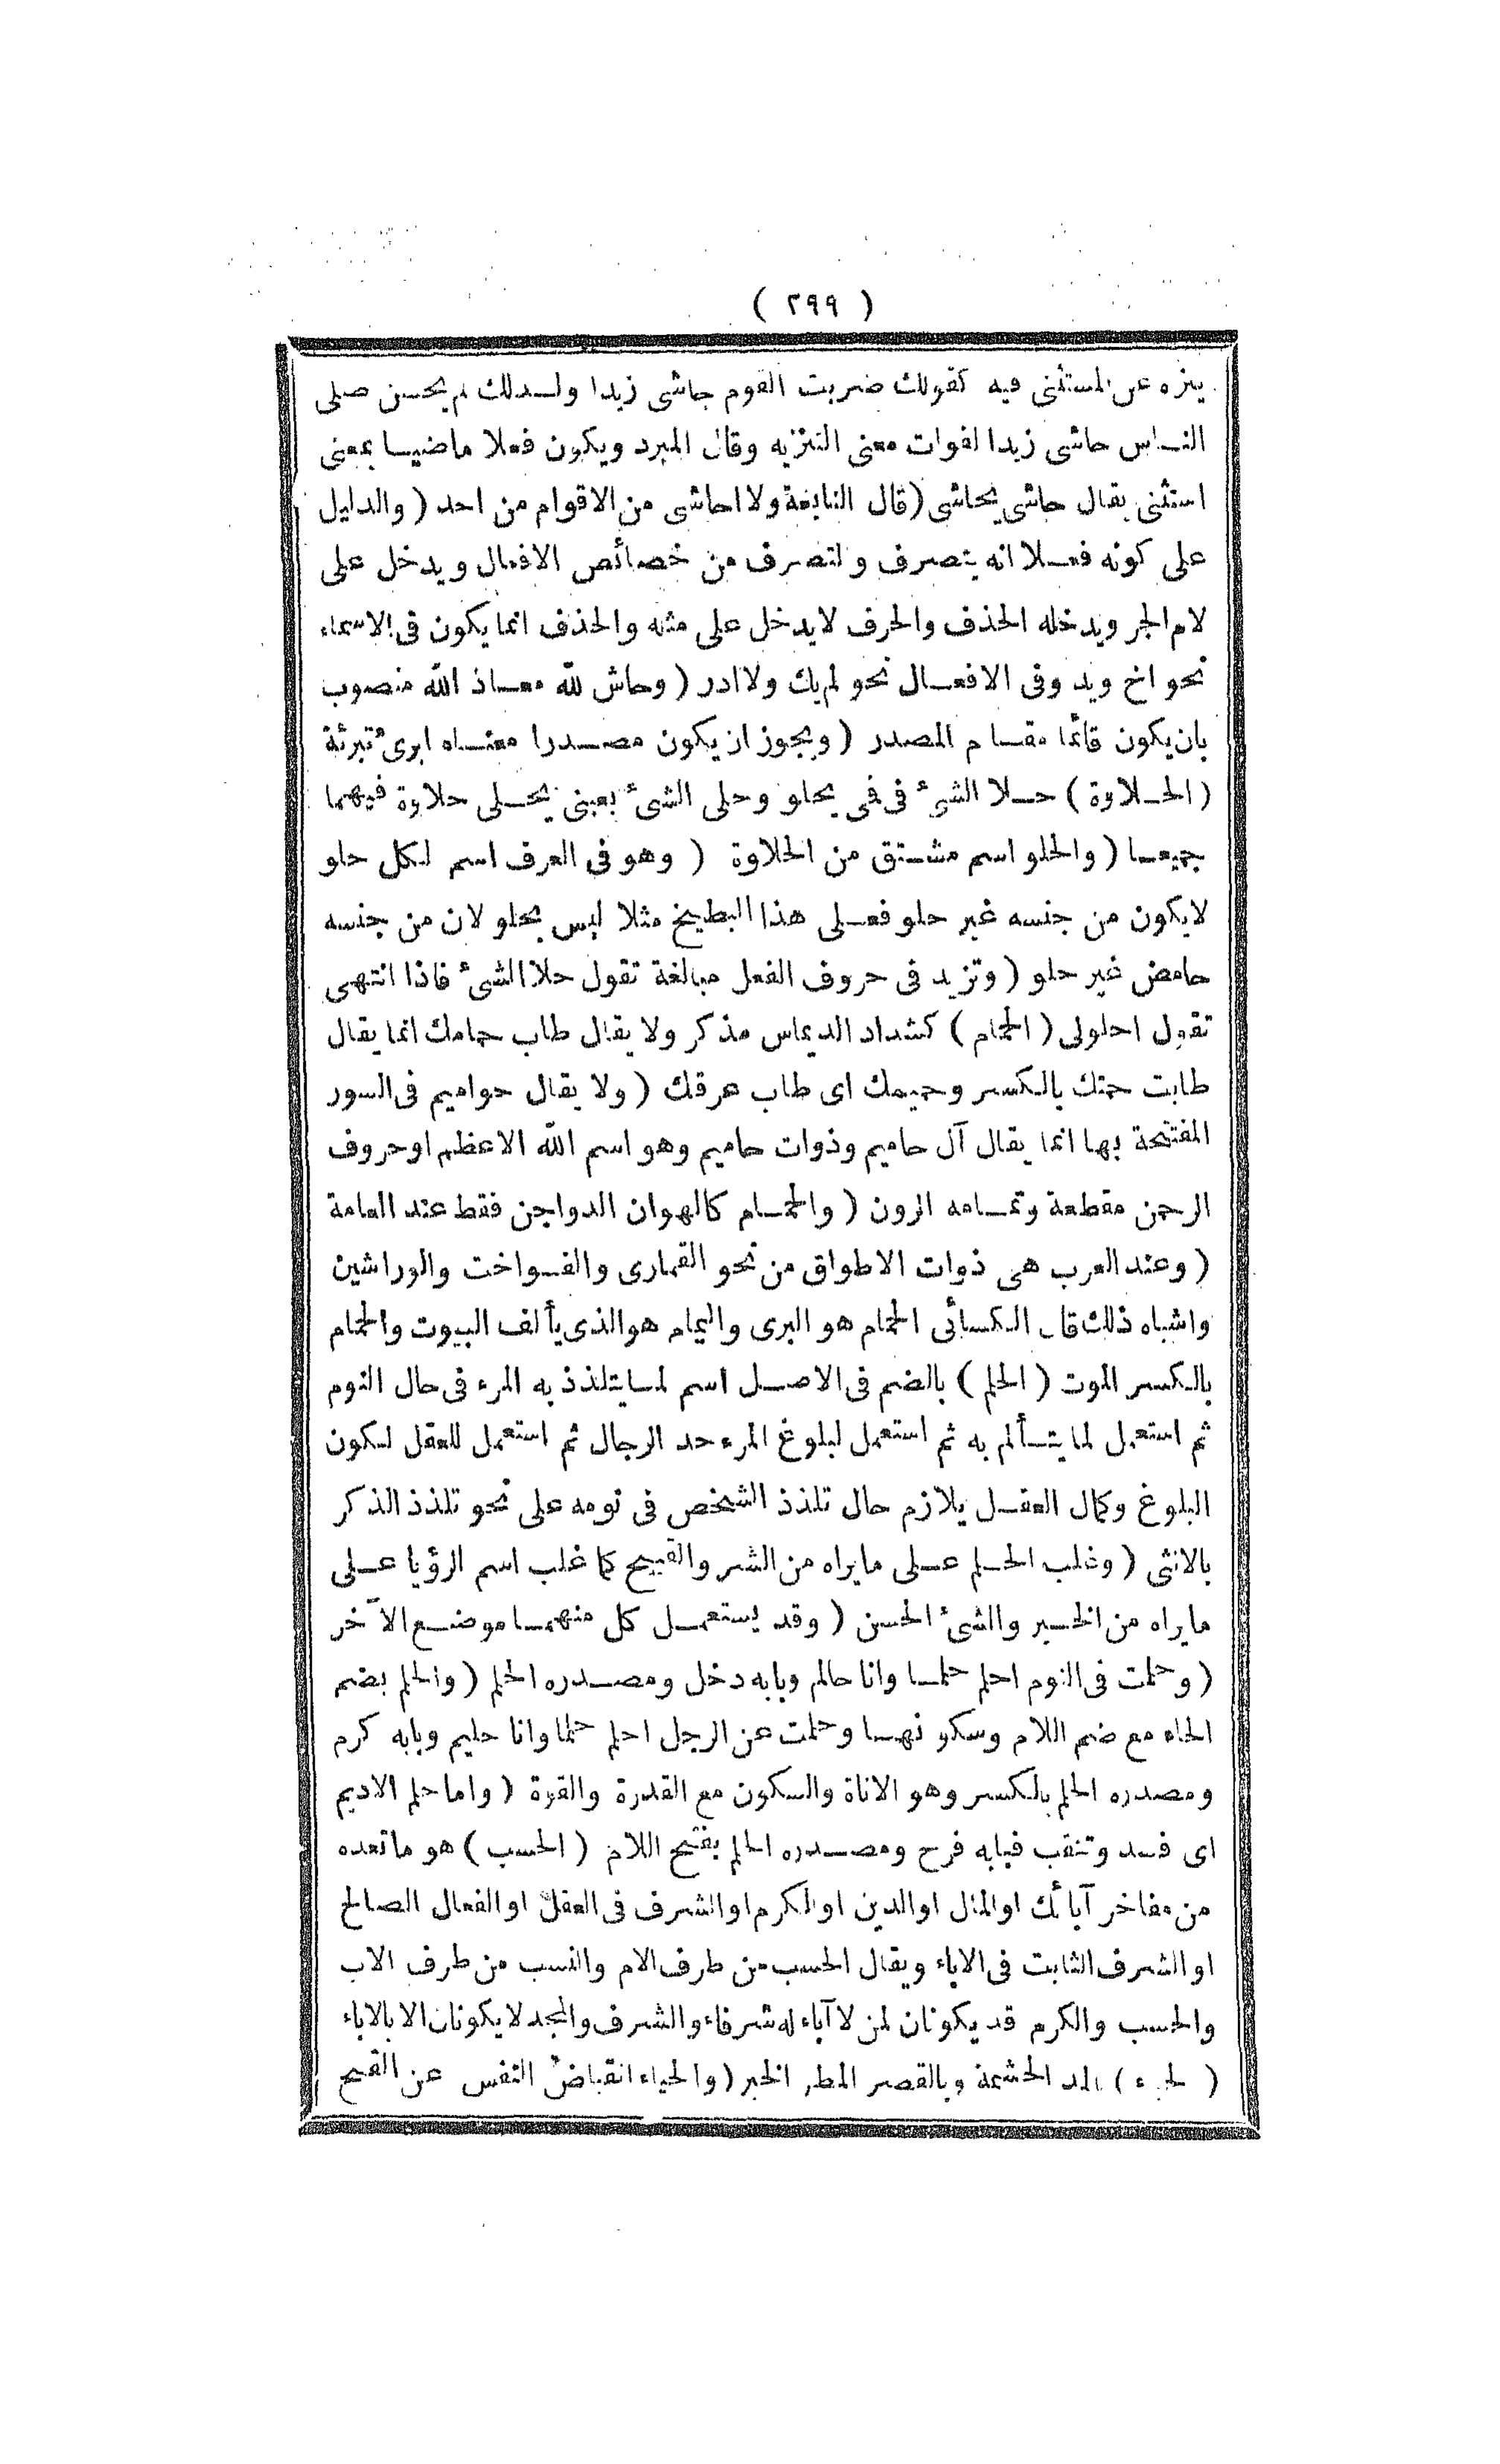 ( ٢٩٩ )
ينزه عن المستثنى فيه كقولك ضربت القوم حاشى زيدا ولـذلك لم يحسن صلى
النـاس حاشى زيدا لفوات معنى التنزيه وقال المبرد ويكون فعلا ماضيـا بمعنى
استثنى يقال حاشى يحاشى (قال النابغة ولا احاشى من الاقوام من احد ( والدليل
على كونه فعـلا انه يتصرف والتصرف من خصائص الافعال ويدخل على
لام الجر ويدخله الحذف والحرف لايدخل على مثله والحذف انما يكون فى الاسماء
نحو اخ ويد وفى الافعـال نحو لم يك ولا ادر ( وحاش لله معـاذ الله منصوب
بان يكون قائما مقـام المصدر ( ويجوز ان يكون مصـدرا معنـاه ابرئ تبرئة
( الحـلاوة ) حـلا الشئ فى فى يحلو وحلى الشئ بعينى يحـلى حلاوة فيهما
جميعـا ( والحلو اسم مشـتق من الحلاوة ( وهو فى العرف اسم لـكل حلو
لايكون من جنسه غير حلو فعـلى هذا البطيخ مثلا ليس بحلو لان من جنسه
حامض غير حلو ( وتزيد فى حروف الفعل مبالغة تقول حلا الشئ فاذا انتهى
تقول احلولى ( الحمام ) كشداد الديماس مذكر ولا يقال طاب حمامك انما يقال
طابت حمتك بالـكسر وحميمك اى طاب عرقك ( ولا يقال حواميم فى السور
المفتتحة بها انما يقال آل حاميم وذوات حاميم وهو اسم الله الاعظم او حروف
الرحمن مقطعة وتمـامه الرون ( والحمـام كالهوان الدواجن فقط عند العامة
( وعند العرب هى ذوات الاطواق من نحو القمارى والفـواخت والوراشين
واشباه ذلك قال الـكسائى الحمام هو البرى واليمام هو الذى يألف البيوت والحمام
بالـكسر الموت ( الحلم ) بالضم فى الاصـل اسم لمـا يتلذذ به المرء فى حال النوم
ثم استعمل لما يتـألم به ثم استعمل لبلوغ المرء حد الرجال ثم استعمل للعقل لـكون
البلوغ وكمال العقـل يلازم حال تلذذ الشخص فى نومه على نحو تلذذ الذكر
بالانثى ( وغلب الحـلم عـلى ما يراه من الشر والقبيح كما غلب اسم الرؤيا عـلى
ما يراه من الخـير والشئ الحسن ( وقد يستعمـل كل منهمـا موضـع الآخر
( وحلمت فى النوم احلم حلمـا وانا حالم وبابه دخل ومصـدره الحلم ( والحلم بضم
الحاء مع ضم اللام وسكونهـا وحلمت عن الرجل احلم حلما وانا حليم وبابه كرم
ومصدره الحلم بالـكسر وهو الاناة والسكون مع القدرة والقوة ( واما حلم الاديم
اى فسد وتنقب فبابه فرح ومصـدره الحلم بفتح اللام ( الحسب ) هو ما تعده
من مفاخر آبائك او المال او الدين او الكرم او الشرف فى العقل او الفعال الصالح
او الشرف الثابت فى الاباء ويقال الحسب من طرف الام والنسب من طرف الاب
والحسب والكرم قد يكونان لمن لا آباء له شرفاء والشرف والمجد لا يكونان الا بالاباء
( الحياء ) بالمد الحشمة وبالقصر المطر الخير ( والحياء انقباض النفس عن القبيح